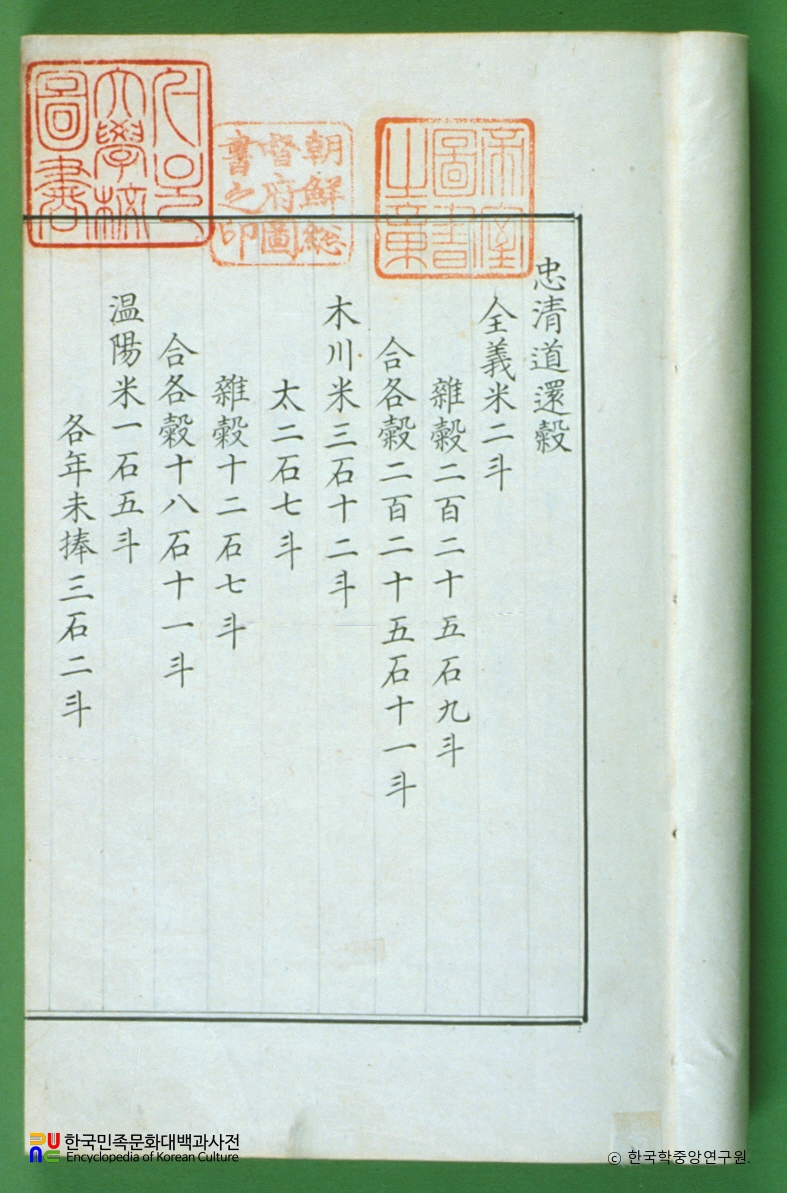 忠清道還糓
全義米二斗
雜糓二百二十五石九斗
合各糓二百二十五石十一斗
木川米三石十二斗
太二石七斗
雜糓十二石七斗
合各糓十八石十一斗
温陽米一石五斗
各年未捧三石二斗
帝室圖書之章
朝鮮總督府圖書之印
서울大學校圖書
한국민족문화대백과사전
Encyclopedia of Korean Culture
© 한국학중앙연구원.